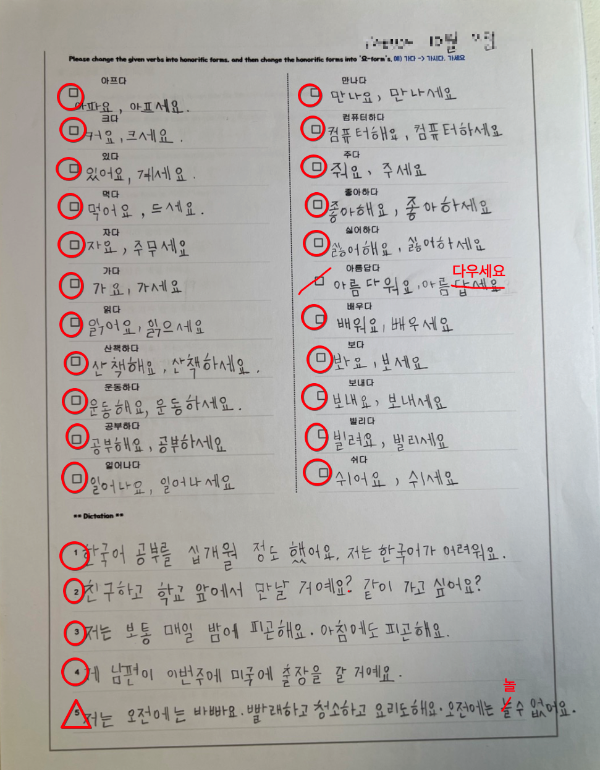 10월
Please change the given verbs into honorific forms, and then change the honorific forms into '요-form's. 예) 가다 -> 가시다, 가세요
아프다
아파요, 아프세요.
크다
커요, 크세요.
있다
있어요, 계세요.
먹다
먹어요, 드세요.
자다
자요, 주무세요
가다
가요, 가세요
읽다
읽어요, 읽으세요
산책하다
산책해요, 산책하세요.
운동하다
운동해요, 운동하세요.
공부하다
공부해요, 공부하세요
일어나다
일어나요, 일어나세요
만나다
만나요, 만나세요
컴퓨터하다
컴퓨터해요, 컴퓨터하세요
주다
줘요, 주세요
좋아하다
좋아해요, 좋아하세요
싫어하다
싫어해요, 싫어하세요
아름답다
다우세요
아름다워요, 아름답세요
배우다
배워요, 배우세요
보다
봐요, 보세요
보내다
보내요, 보내세요
빌리다
빌려요, 빌리세요
쉬다
쉬어요, 쉬세요
** Dictation **
1 한국어 공부를 십개월 정도 했어요. 저는 한국어가 어려워요.
2 친구하고 학교 앞에서 만날 거예요? 같이 가고 싶어요?
3 저는 보통 매일 밤에 피곤해요. 아침에도 피곤해요.
4 제 남편이 이번주에 미국에 출장을 갈 거예요.
놀
5 저는 오전에는 바빠요. 빨래하고 청소하고 요리도해요. 오전에는 수 없어요.